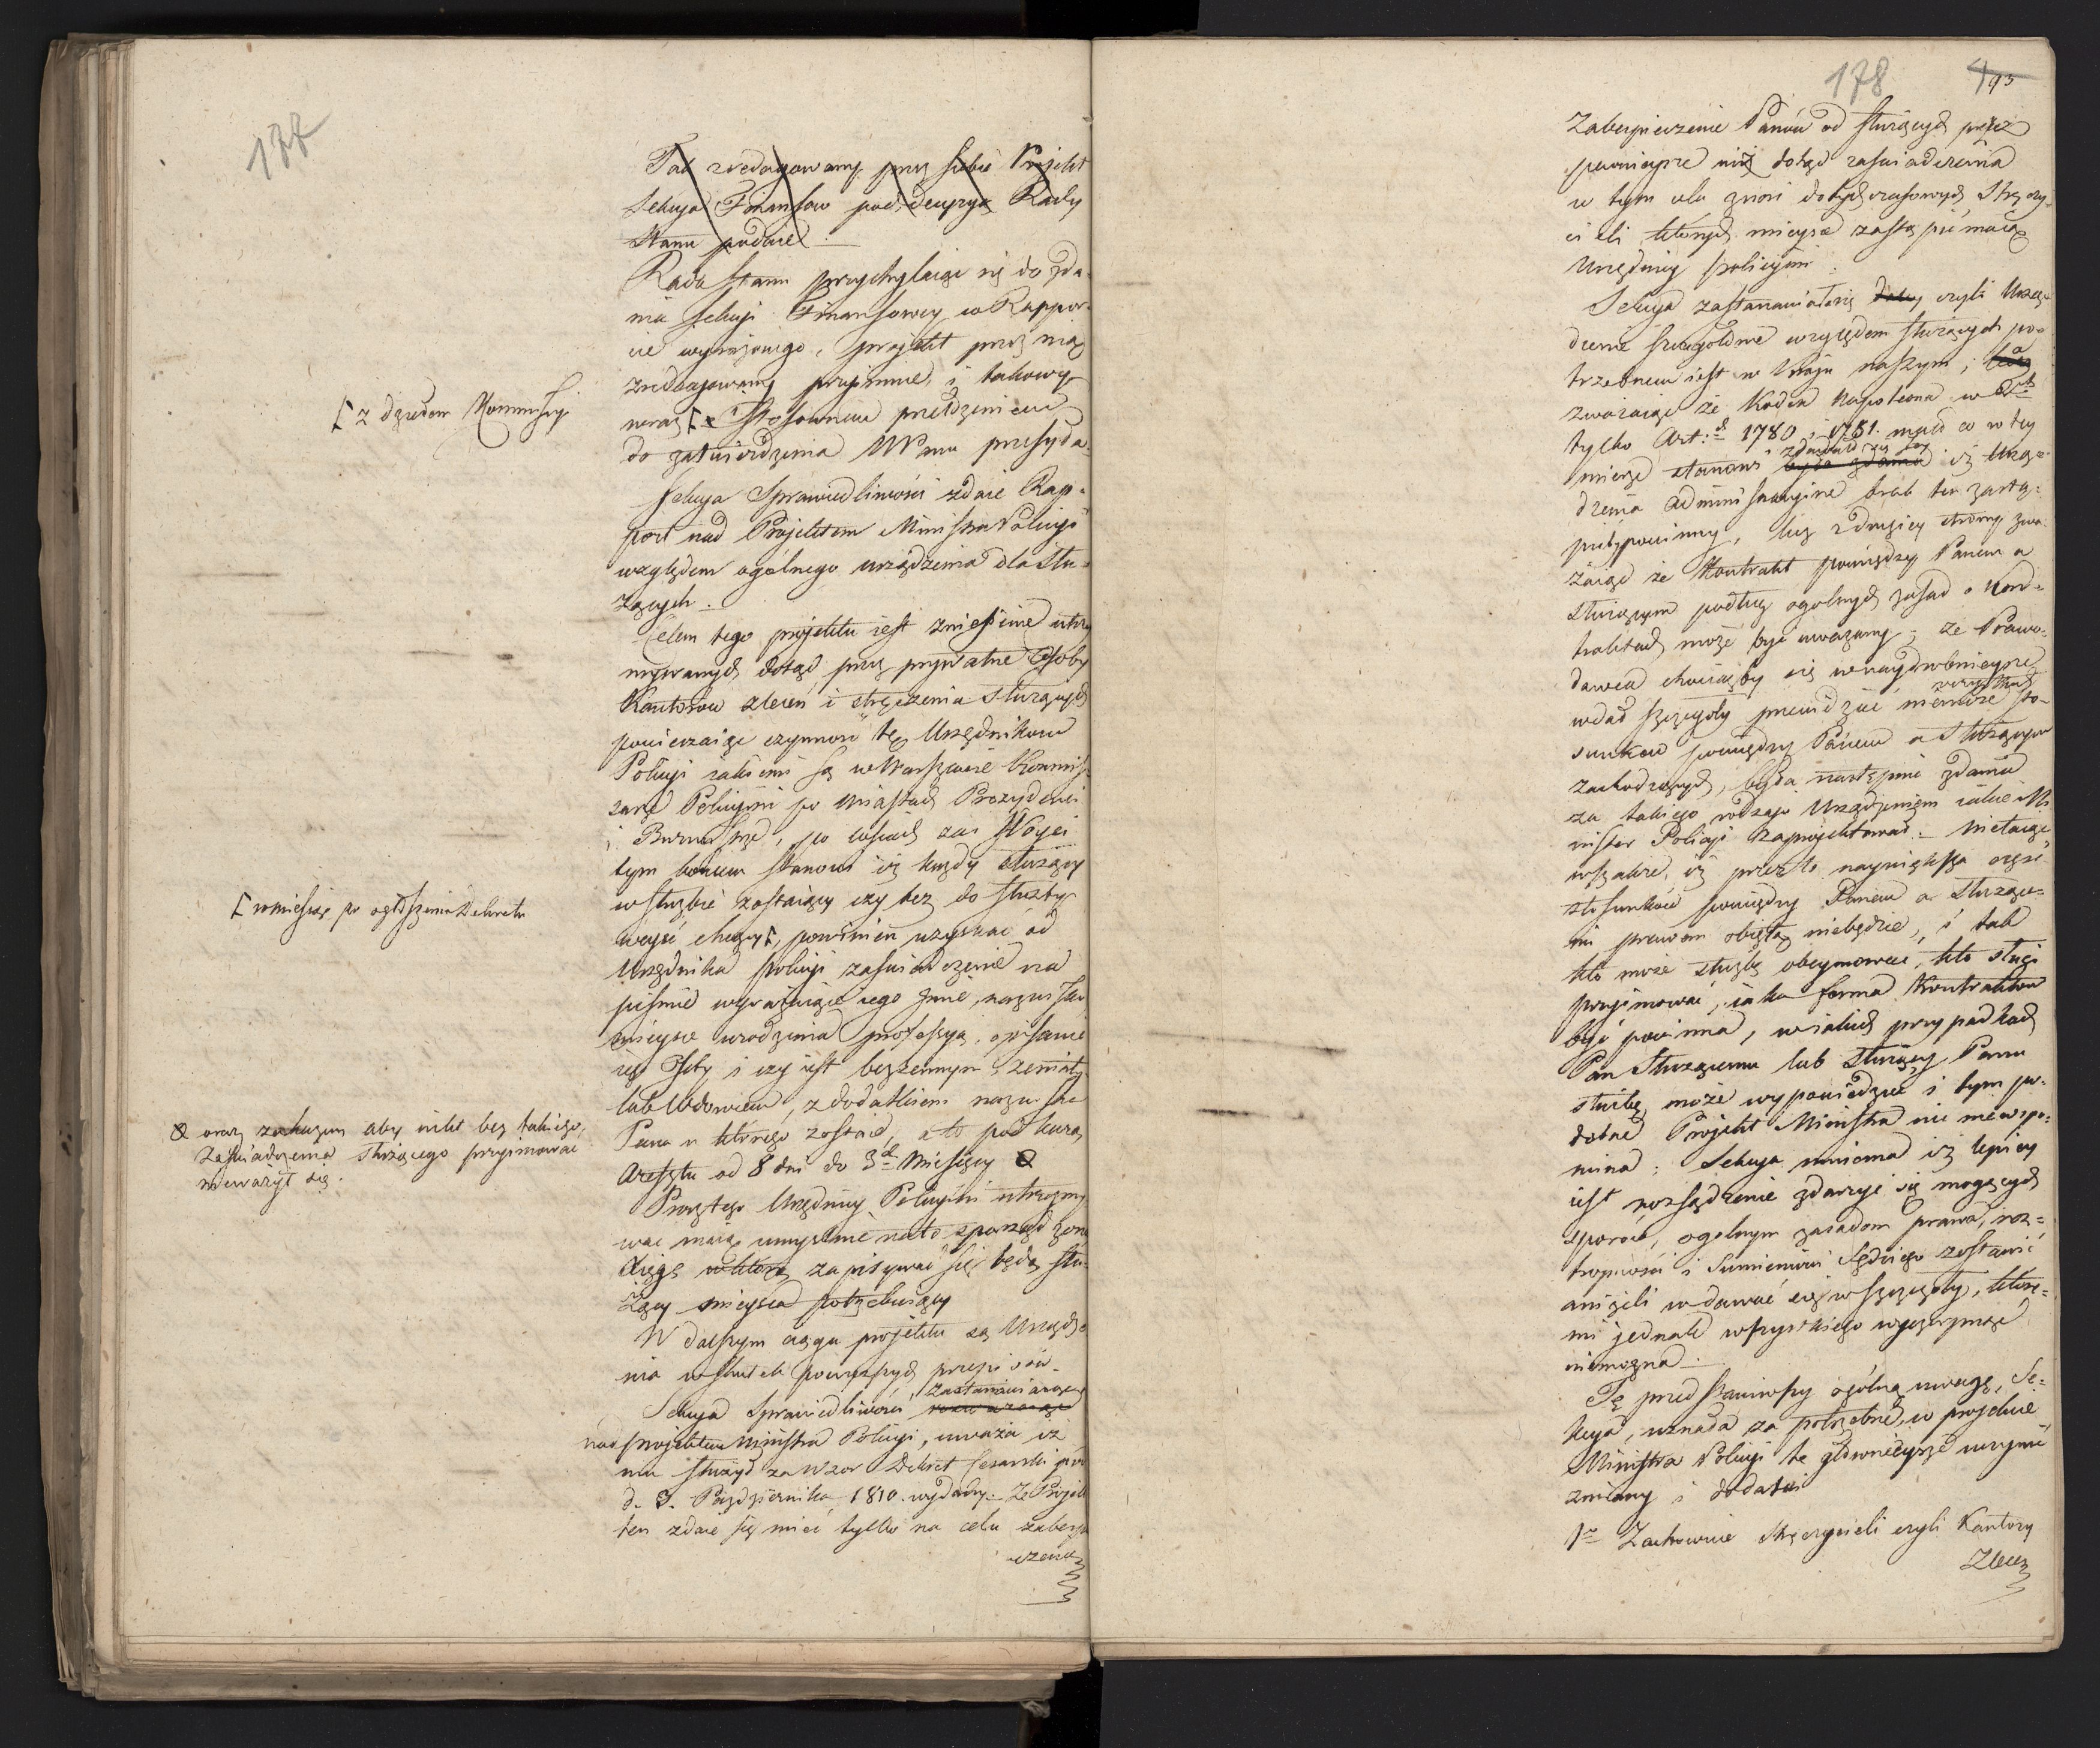 177
Tak zredagowany przez siebie Projekt
Sekcya Finansow pod decyzyą Rady
Stanu podaie.
Rada Stanu przychylaiąc się do zda-
nia Sekcyi Finansowey w Rappor-
cie wyrażonego, projekt przez nią
zredagowany przyimuie, i takowy
[ z dziełem Kommissyi
wraz [ z stosownem przełożeniem
do zatwierdzenia NPanu przesyła.
Sekcya Sprawiedliwości zdaie Rap-
port nad Projektem Ministra Policyi
względem ogólnego urządzenia dla Słu-
żących.
Celem tego projektu iest zniesienie utrzy
mywanych dotąd przez prywatne Osoby
Kantorów zleceń i stręczenia Służących
powierzaiąc czynność tę Urzędnikom
Policyi iakiemi są w Warszawie Kommis-
sarze Policyini po miastach Prezydenci
i Burmistrze, po wsiach zaś Woyci
tym końcem stanowi iż każdy służący
w służbie zostaiący czy też do służby
[ w miesiąc po ogłoszeniu Dekretu
weyść chcący [, powinien uzyskać od
Urzędnika policyi zaświadczenie na
piśmie wyrażaiące iego Imie, nazwisko
mieysce urodzenia professyą, opisanie
iego Osoby i czy iest bezżennym, żonaty
lub Wdowcem, z dodatkiem nazwiska
Pana u którego zostaie, a to pod karą
Aresztu od 8 dni do 3ch Miesięcy
oraz zakazem aby nikt bez takiego
zaświadczenia służącego przyimować
nieważył się.
Prócz tego Urzędnicy Policyini utrzymy
wać maią umyślnie na to sporządzoną
Xięgę w którą zapisywać się będą słu-
żący mieysca potrzebuiący
W dalszym ciągu projektu są Urządze
nia w skutek powyższych przepisów.
zastanawiaiąc
Sekcya Sprawiedliwości
nad projektem Ministra Policyi, uważa iż
mu służył za Wzór Dekret Cesarski pod
d. 3. Października 1810. wydany. Że Projekt
ten zdaie się mieć tylko na celu zabezpie
czenie
178
193
Zabezpieczenie Panów od służących przez
pewnieysze niż dotąd zaświadczenia
w tym celu znosi dotychczasowych Stręczy-
cieli których mieysce zastąpić maią
Urzędnicy policyini.
Sekcya zastanawiała się czyli Urzą-
dzenie szczególne względem służących po-
trzebnem iest w kraiu naszym, a
zważaiąc że Kodex Napoleona w 2ch
tylko Art: 1780 i 1781. mało co w tey
mierze stanowi zdawało się iey iż Urzą-
dzenia administracyine brak ten zastą-
pićby powinny, lecz z drugiey strony zwa-
żaiąc że Kontrakt pomiędzy Panem a
służącym podług ogólnych zasad o Kon-
traktach może być uważany; że Prawo-
dawca chociażby się w naydrobnieysze
wdał szczegóły przewidzieć niemoże wszystkich sto-
sunków pomiędzy Panem a Służącym
zachodzących, była nareszcie zdania
za takiego rodzaju Urządzeniem iakie Mi
nister Policyi zaproiektował. Nietaiąc
wszakże, iż przez to naywiększa część
stosunków pomiędzy Panem a Służące-
mi prawem obiętą niebędzie, i tak
kto może służbę obeymować, kto sługi
przyimować, iaka forma Kontraktów
być powinna, w iakich przypadkach
Pan Służącemu lub służący Panu
służbę może wypowiedzieć i tym po-
dobne Projekt Ministra nic niewspo-
mina: Sekcya mniema iż lepiey
iest rozsądzenie zdarzyć się mogących
sporów, ogólnym zasadom prawa, roz-
tropności i Sumienności Sędziego zostawić
aniżeli wdawać się w szczegóły, które-
mi jednak wszystkiego wyczerpnąć
niemożna.
Tę przedstawiwszy ogólną uwagę, Se-
kcya, uznała za potrzebne w projekcie
Ministra Policyi te główneysze uczynić
zmiany i dodatki
1o Zachowuie stręczycieli czyli Kantory
Zleceń